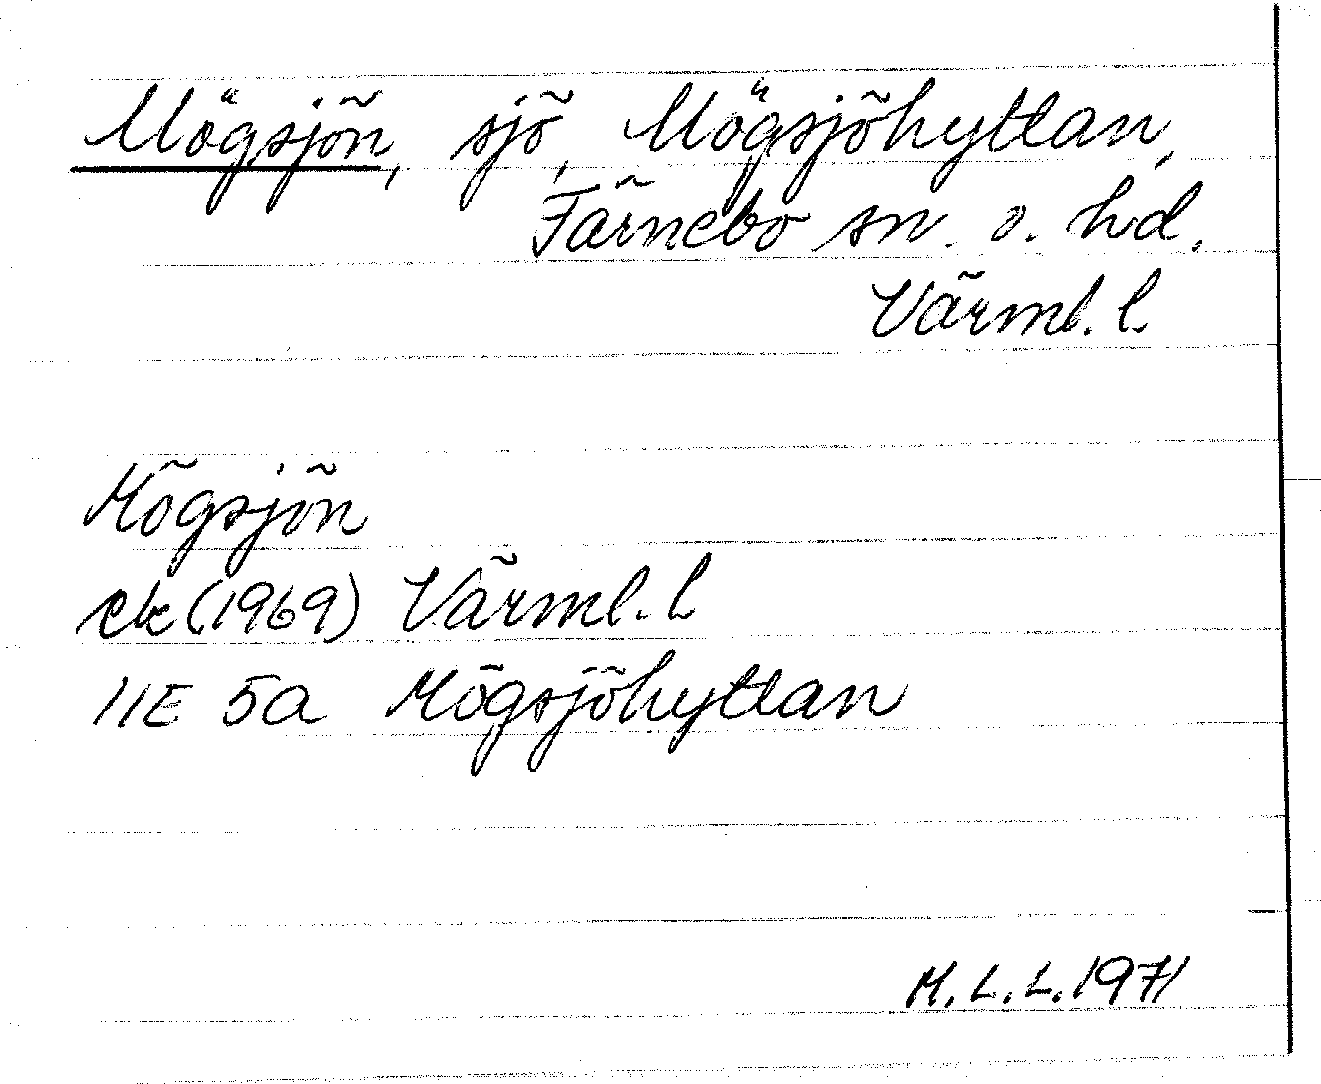 Mögsjön, sjö, Mögsjöhyttan,
Färnebo sn. o. hd.
Värml. l.
Mögsjön
ek (1969) Värml. l
11E 5a Mögsjöhyttan
M. L. L. 1971